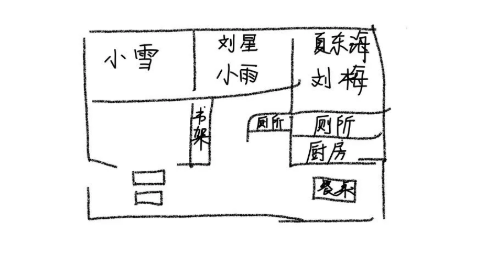 小雪
刘星
小雨
夏东海
刘梅
书架
厕所
厕所
厨房
餐桌